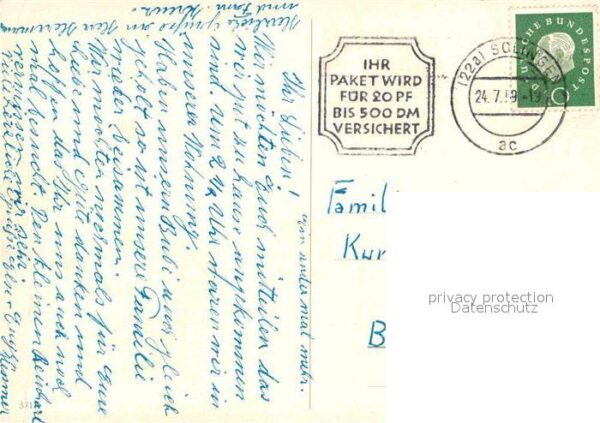 Ihr Lieben!
Wir möchten Euch mitteilen das
wir gut zu hause angekommen
sind um 2 ¼ Uhr waren wir in
unsere Wohnung.
Haben unsern Bubi a
gleich
geholt so ist unsere Familie
wieder beisammen.
Wir möchten nochmals für Eure
Liebe und Güte danken und
hoffen das Ihr uns auch noch
mal besucht. Den kleinen
vermissen wir sehr.
Herzliche Grüße
ein ander mal mehr.
Herzliche Grüße an Herr
und Fam.
IHR
PAKET WIRD
FÜR 20 PF
BIS 500 DM
VERSICHERT
(22a) SOLINGEN
24.7.59
ac
DEUTSCHE BUNDESPOST
10
Famil
Kur
B
privacy protection
Datenschutz